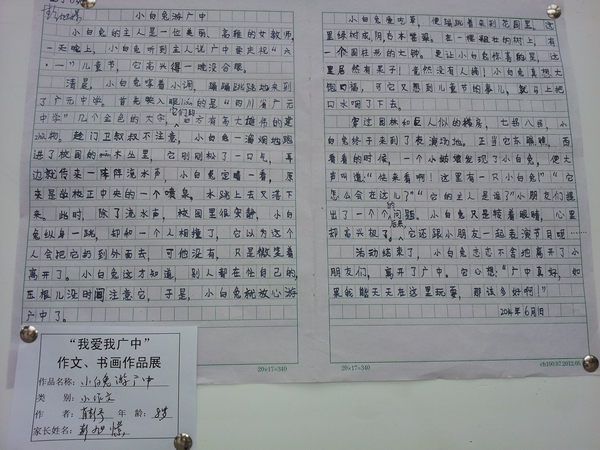 小白兔游广中
小白兔的主人是一位美丽、高雅的女教师，
一天晚上，小白兔听到主人说广中要庆祝“六
·一”儿童节，它高兴得一晚没合眼。
清晨，小白兔哼着小调，蹦蹦跳跳地来到
了广元中学。首先映入眼的是“四川省广元
中学”几个金色的大字，后方有高大雄伟的建
筑物。趁门卫叔叔不注意，小白兔一溜烟地跑
进了校园的丛里，它刚刚松了一口气，耳
边就传来一阵阵流水声，小白兔定睛一看，原
来是坐校正中央的一个喷泉。水跳上去又落下
来。此时，除了流水声，校园里很安静，小白
兔纵身一跳，却和一个人相撞了，它以为这个
人会把它扔到外面去，可他没有，只是微笑着
离开了。小白兔这才知道，别人都在忙自己的，
压根儿没时间注意它，于是，小白兔就放心游
广中了。
小白兔爱吃草，便蹦跳着来到花园里，这
里绿树成阴，百木繁翠。在一棵粗壮的树上，有
一个圆柱形的大钟。更让小白兔惊喜的是，这
里居然有果子！竟然没有人摘！小白兔真想大
饱口福，可它又想到儿童节的事儿，就马上把
口水咽了下去。
穿过园林和巨人似的楼房，七拐八拐，小
白兔终于来到了表演场地。正当它东瞧瞧，西
看看的时候，一个小姑娘发现了小白兔，便大
声叫道：“快来看啊！这里有一只小白兔！”“它
怎么会在这儿？”“它的主人是谁？”小朋友们提
出了一个个的问题。小白兔只是转着眼睛，心里
却高兴极了。后来，它还跟小朋友一起表演节目呢……
活动结束了，小白兔恋恋不舍地离开了小
朋友们，离开了广中。它心想：“广中真好，如
果我能天天在这里玩耍，那该多好啊！”
2014年6月1日
20×17=340
20×17=340
“我爱我广中”
作文、书画作品展
作品名称：小白兔游广中
类 别：小作文
作 者：
年 龄：8岁
家长姓名：